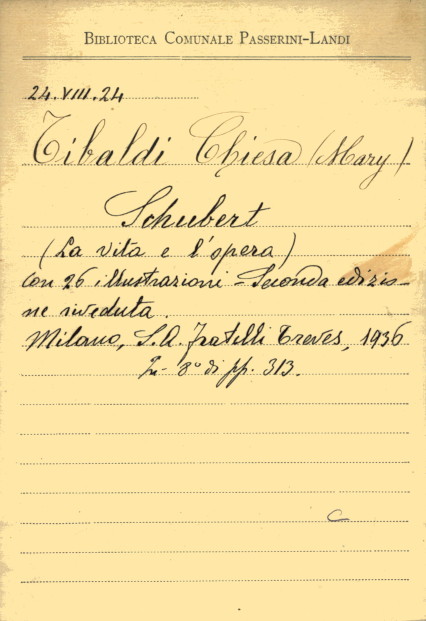 BIBLIOTECA COMUNALE PASSERINI-LANDI
24.VIII.24
Tibaldi Chiesa (Mary)
Schubert
(La vita e l'opera)
con 26 illustrazioni - Seconda edizio-
ne riveduta.
Milano, S.A. fratelli Treves, 1936
In-8° di pp. 313.
C